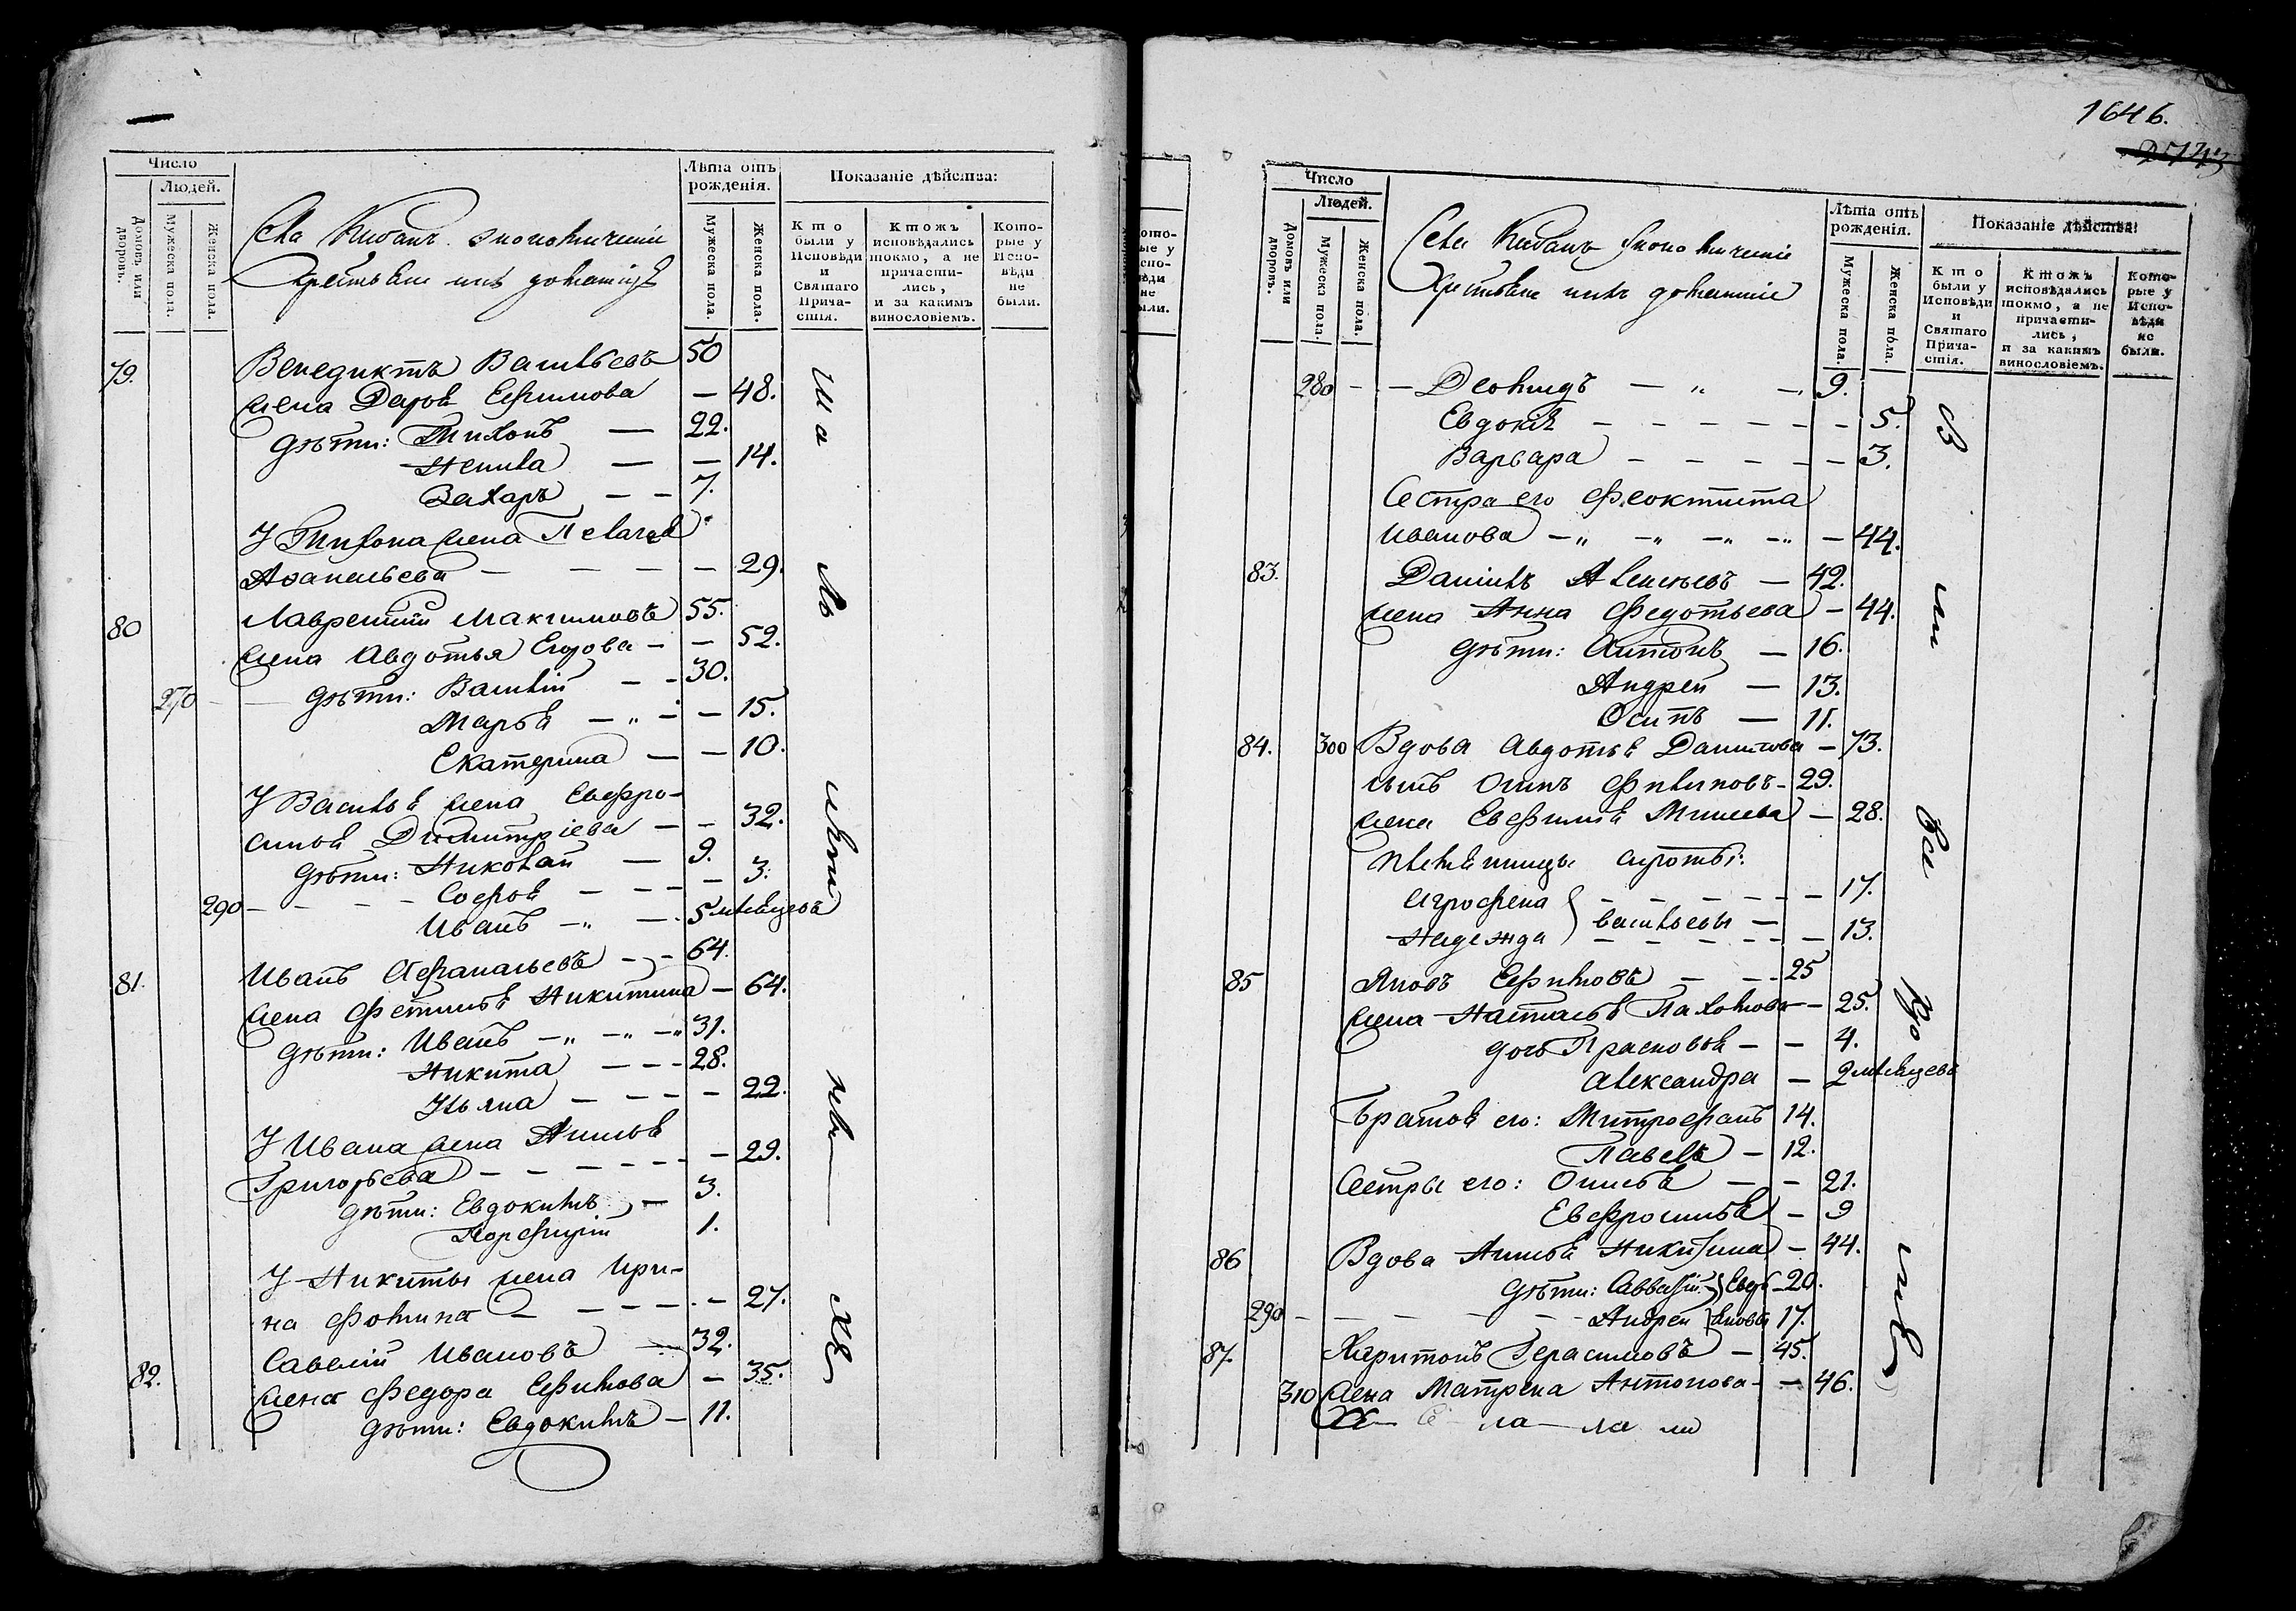 Число
Людей.
Домовъ или дворовъ.
Мужеска пола.
Женска пола.
Села экономическіе
крестьяне ихъ домашніе
Лѣта отъ рожденія.
Мужеска пола.
Женска пола.
Показаніе дѣйства:
Кто были у Исповѣди и Святаго Прича-стія.
Ктожъ исповѣдались токмо, а не причасти-лись, и за какимъ винословіемъ.
Кото-рые у Испо-вѣди не были.
79. Венедиктъ Васильевъ 50
жена Дарья Ефимова — 48.
дѣти: Тихонъ — 22.
Ненила — — 14.
Захаръ — — 7.
У Тихона жена Пелагея
Афанасьева — — — — 29.
80 Лаврентій Максимовъ 55.
жена Авдотья Егорова — — 52.
270 — — дѣти: Василій — — 30.
Марья — „ — — 15.
Екатерина — — 10.
У Василья жена Евфро-
синья Димитріева — — 32.
дѣти: Николай — 9.
Софья — — — — 3.
290 — — — — Иванъ — „ — 5 мѣсяцевъ
81. Иванъ Афанасьевъ — — 64.
жена Фетинья Никитина — 64.
дѣти: Иванъ — „ — „ — „ 31.
Никита — — — 28.
Ульяна — — — — 22.
У Ивана жена Анисья
Григорьева — — — — — — 29.
дѣти: Евдокимъ — 3.
Порфирій 1.
У Никиты жена Ири-
на Фомина — — — — — — 27.
82. Савелій Ивановъ — 32.
жена Федора Ефимова — 35.
дѣти: Евдокимъ — 11.
1646.
Число
Людей.
Домовъ или дворовъ.
Мужеска пола.
Женска пола.
Села экономическіе
крестьяне ихъ домашніе
Лѣта отъ рожденія.
Мужеска пола.
Женска пола.
Показаніе дѣйства:
Кто были у Исповѣди и Святаго Прича-стія.
Ктожъ исповѣдались токмо, а не причасти-лись, и за какимъ винословіемъ.
Кото-рые у Испо-вѣди не были.
280 — — Деомидъ — „ — 9.
Евдокія — — — — — — 5.
Варвара — — — — — 3.
Сестра его Феоктиста
Иванова — „ — „ — „ — „ — 44.
83. Даніилъ — 42.
жена Анна Федотьева — 44.
дѣти: Антонъ — 16.
Андрей — 13.
Осипъ — 11.
84. 300 Вдова Авдотья Данилова — 73.
сынъ Осипъ Филиповъ — 29.
жена Евфимія — 28.
племянницы сироты:
Агрофена — — — — — — 17.
Васильевы —
Надежда — — — — — — 13.
85 Яковъ Ефимовъ — — — 25
жена Настасья Пахомова — 25.
дочь Прасковья — — 4.
Александра — 2 мѣсяцевъ
Братья его: Митрофанъ 14.
Павелъ — 12.
Сестры его: — — 21.
Евфросинья — 9
86 Вдова Анисья Никитина — 44.
дѣти: 20.
290 — — — — — — Андрей 17.
87. Харитонъ Герасимовъ — 45.
310 жена Матрена Антонова — — 46.